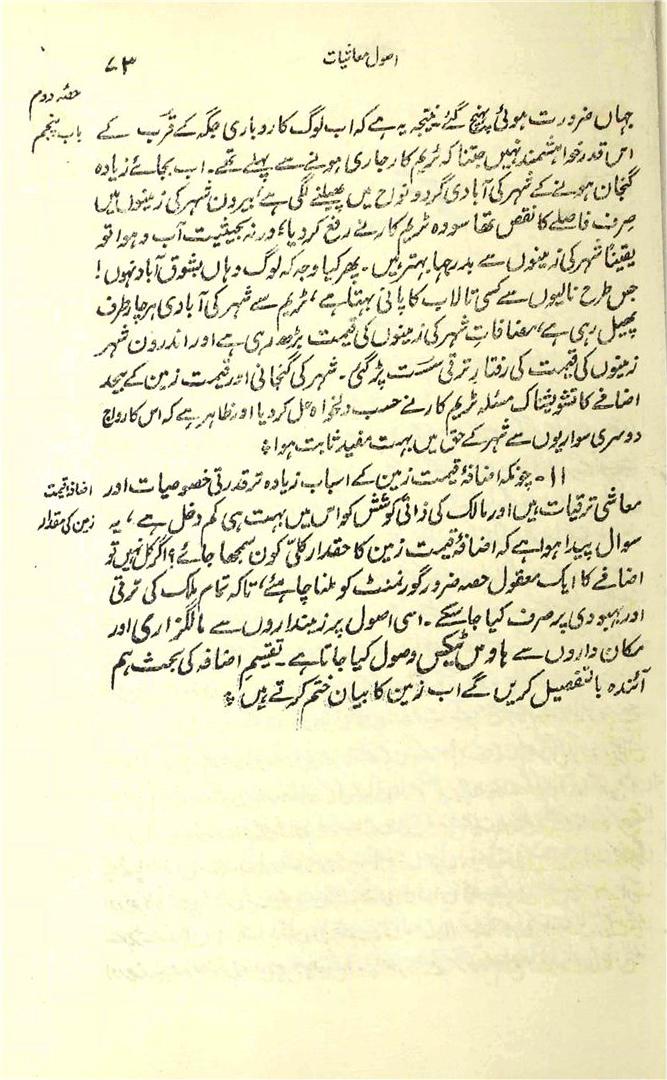 اصول معاشیات
۷۳
حصہ دوم
باب پنجم
جہاں ضرورت ہوئی پہنچ گئے۔ نتیجہ یہ ہے کہ اب لوگ کاروباری جگہ کے قرب کے
اس قدر خواہشمند نہیں جتنا کہ ٹریم کار جاری ہونے سے پہلے تھے۔ اب بجائے زیادہ
گنجان ہونے کے شہر کی آبادی گردونواح میں پھیلنے لگی ہے، بیرون شہر کی زمینوں میں
صِرف فاصلے کا نقص تھا سو وہ ٹریم کار نے رفع کر دیا؛ ورنہ بحیثیت آب و ہوا تو
یقیناً شہر کی زمینوں سے بدرجہا بہتر ہیں۔ پھر کیا وجہ کہ لوگ وہاں بشوق آباد نہوں!
جس طرح نالیوں سے کسی تالاب کا پانی بہتا ہے، ٹریم سے شہر کی آبادی ہر چار طرف
پھیل رہی ہے، مضافاتِ شہر کی زمینوں کی قیمت بڑھ رہی ہے اور اندرون شہر
زمینوں کی قیمت کی رفتار ترقی سست پڑ گئی۔ شہر کی گنجانی اور قیمت زمین کے بیحد
اضافے کا تشویشناک مسئلہ ٹریم کار نے حسب دلخواہ حل کر دیا اور ظاہر ہے کہ اس کا رواج
دوسری سواریوں سے شہر کے حق میں بہت مفید ثابت ہوا؞
اضافۂ قیمت
زمین کی مقدار
۱۱۔ چونکہ اضافۂ قیمت زمین کے اسباب زیادہ تر قدرتی خصوصیات اور
معاشی ترقیات ہیں اور مالک کی ذاتی کوشش کو اس میں بہت ہی کم دخل ہے، یہ
سوال پیدا ہوا ہے کہ اضافۂ قیمت زمین کا حقدار کلیّ کون سمجھا جائے؟ اگر کل نہیں تو
اضافے کا ایک معقول حصہ ضرور گورنمنٹ کو ملنا چاہئے، تاکہ تمام ملک کی ترقی
اور بہبودی پر صرف کیا جاسکے۔ اسی اصول پر زمینداروں سے مالگزاری اور
مکان داروں سے ہاوس ٹیکس وصول کیا جاتا ہے۔ تقسیم اضافہ کی بحث ہم
آئندہ بالتفصیل کریں گے اب زمین کا بیان ختم کرتے ہیں؞